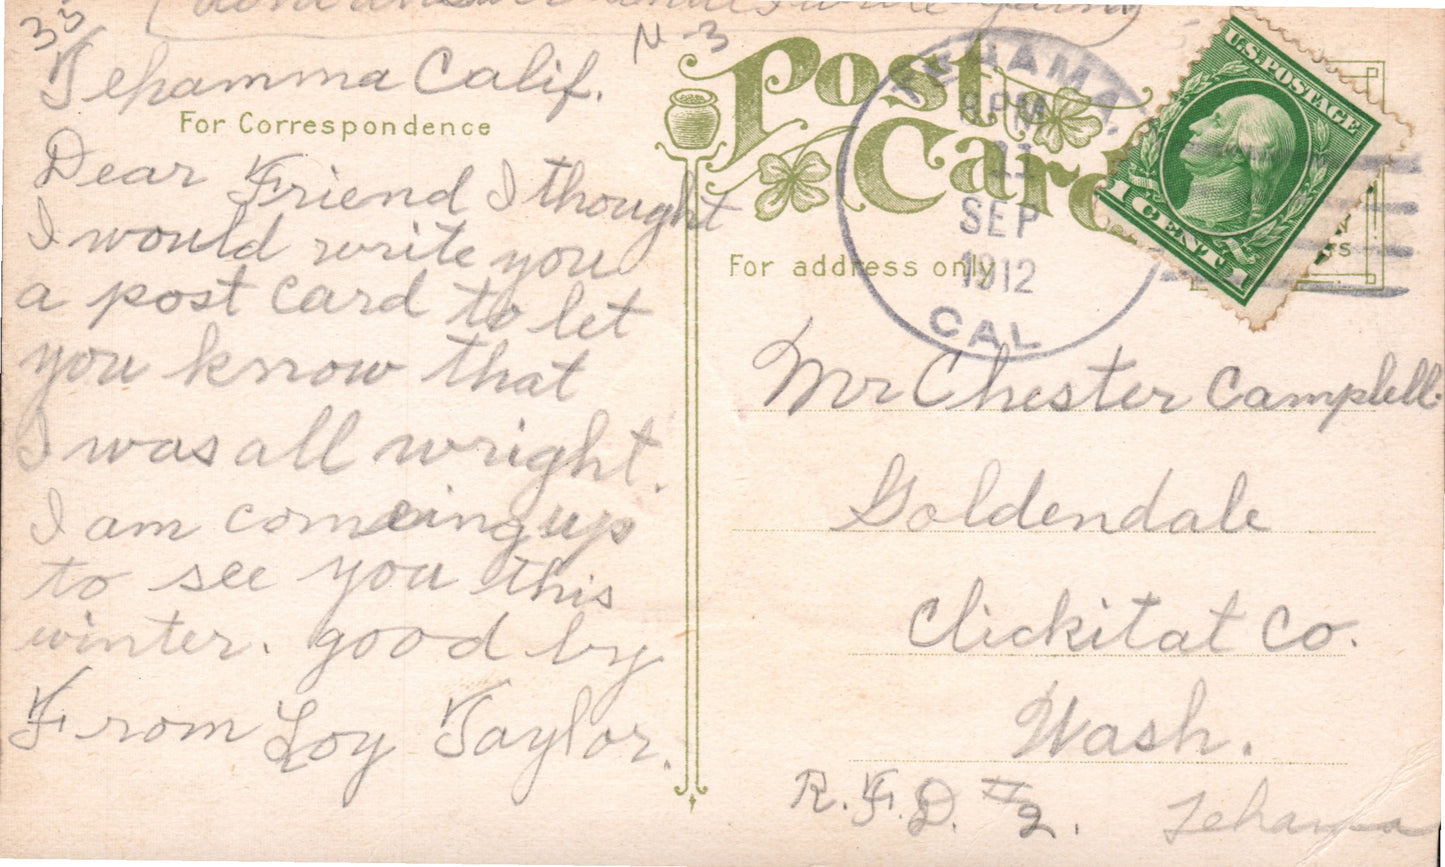 33
N-3
Tehamma Calif.
For Correspondence
Dear Friend I thought
I would write you
a post card to let
you know that
I was all wright.
I am comeing up
to see you this
winter. good by
From Loy Taylor.
Post Card
For address only
TEHAMA,
8 PM
11
SEP
1912
CAL
U.S. POSTAGE
1 CENT 1
Mr Chester Campbell.
Goldendale
Clickitat Co.
Wash.
R.F.D. #2.
Tehama